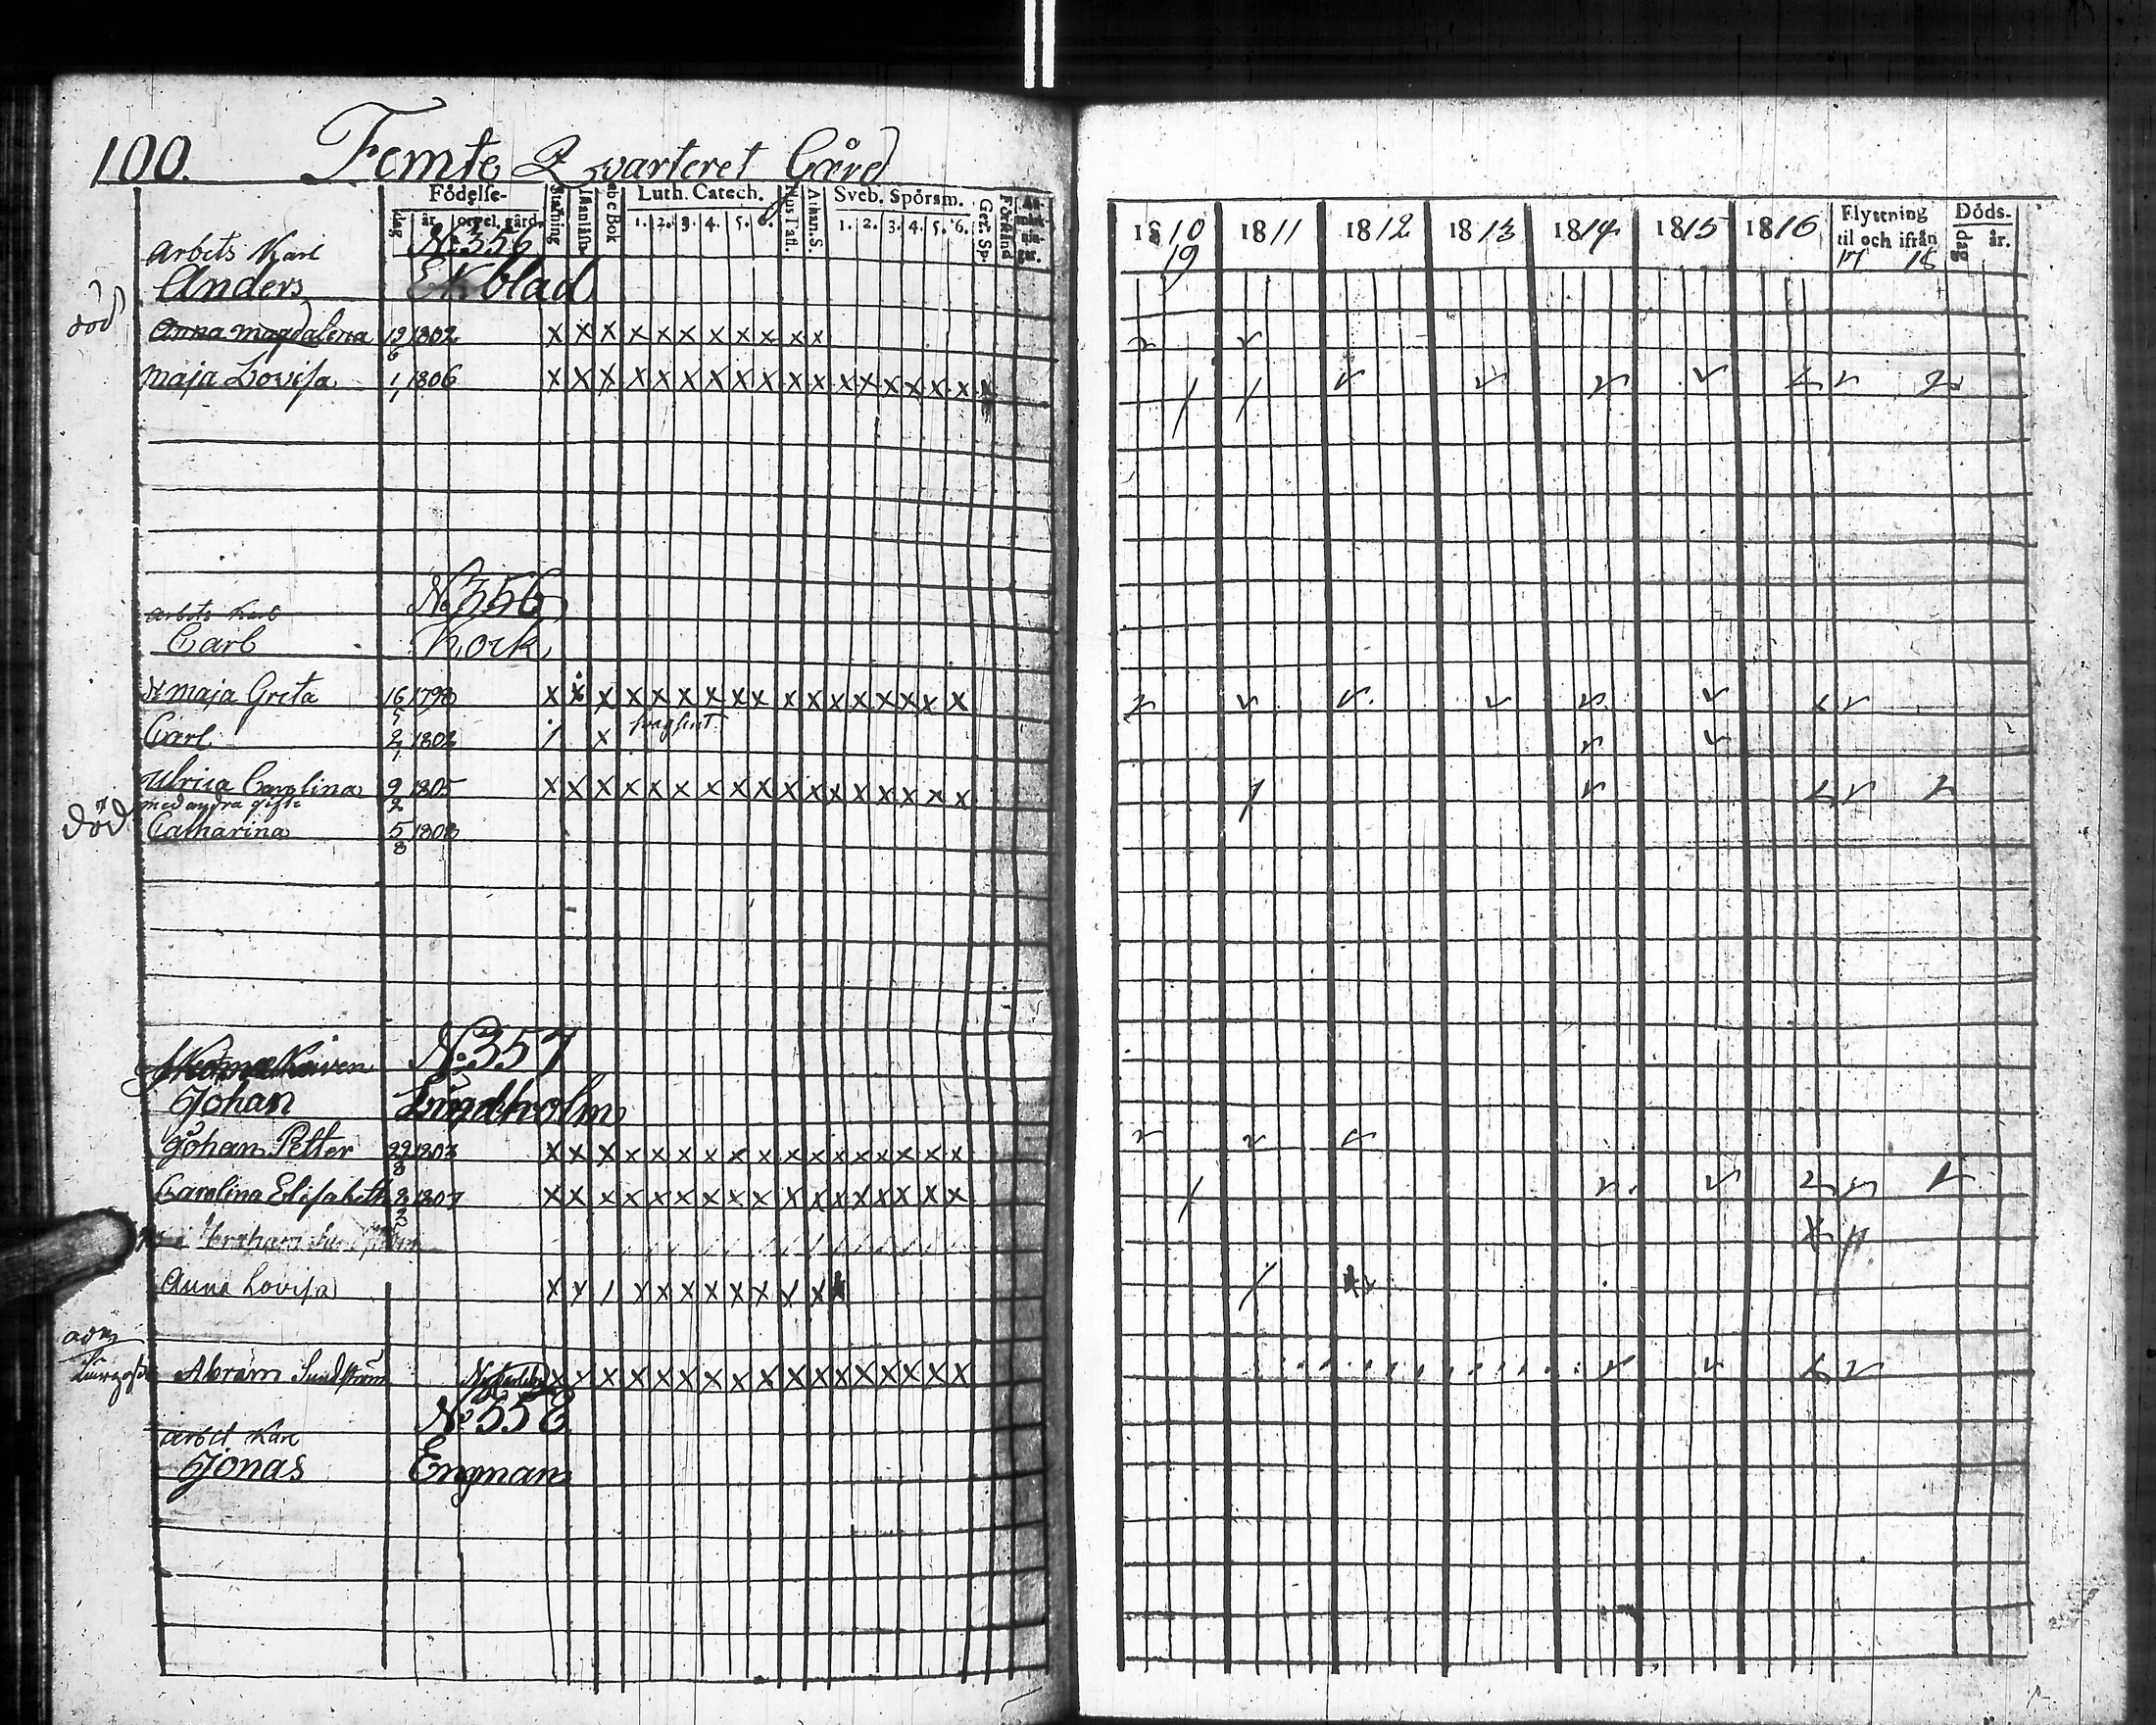 100. Femte Qvarteret Gård
Födelse- Luth. Catech. Sveb. Spörsm.
dag år. ort el. gård. Stafning Innanläsn. abc Bok 1. 2. 3. 4. 5. 6. Hus Tafl. Athan. S. 1. 2. 3. 4. 5. 6. Ger. Sp. Förstånd An-märk-nin-gar.
Arbets Karl No 356
Anders Ekblad
död Anna Magdalena 12/6 1802 x x x x x x x x x x x
Maja Lovisa 1/1 1806 x x x x x x x x x x x x x x x x x x
No 356
arbets Karl
Carl Kock
Maja Greta 16/5 1798 x x x x x x x x x x x x x x x x x
Carl 2/1 1802 / x
Ulrica Carolina 9/2 1805 x x x x x x x x x x x x x x x x x
med andra gifte
död Catharina 5/8 1808
No 357
Johan Lundholm
Johan Petter 22/8 1803 x x x x x x x x x x x x x x x x x
Carolina Elisabeth 8/2 1807 x x x x x x x x x x x x x x x x x
Anna Lovisa x x / x x x x x x x x
Abram Sundström x x x x x x x x x x x x x x x x x
No 358
arbet Karl
Jonas Engman
1810 1811 1812 1813 1814 1815 1816 Flyttning til och ifrån Döds-
19 17 18 dag år.